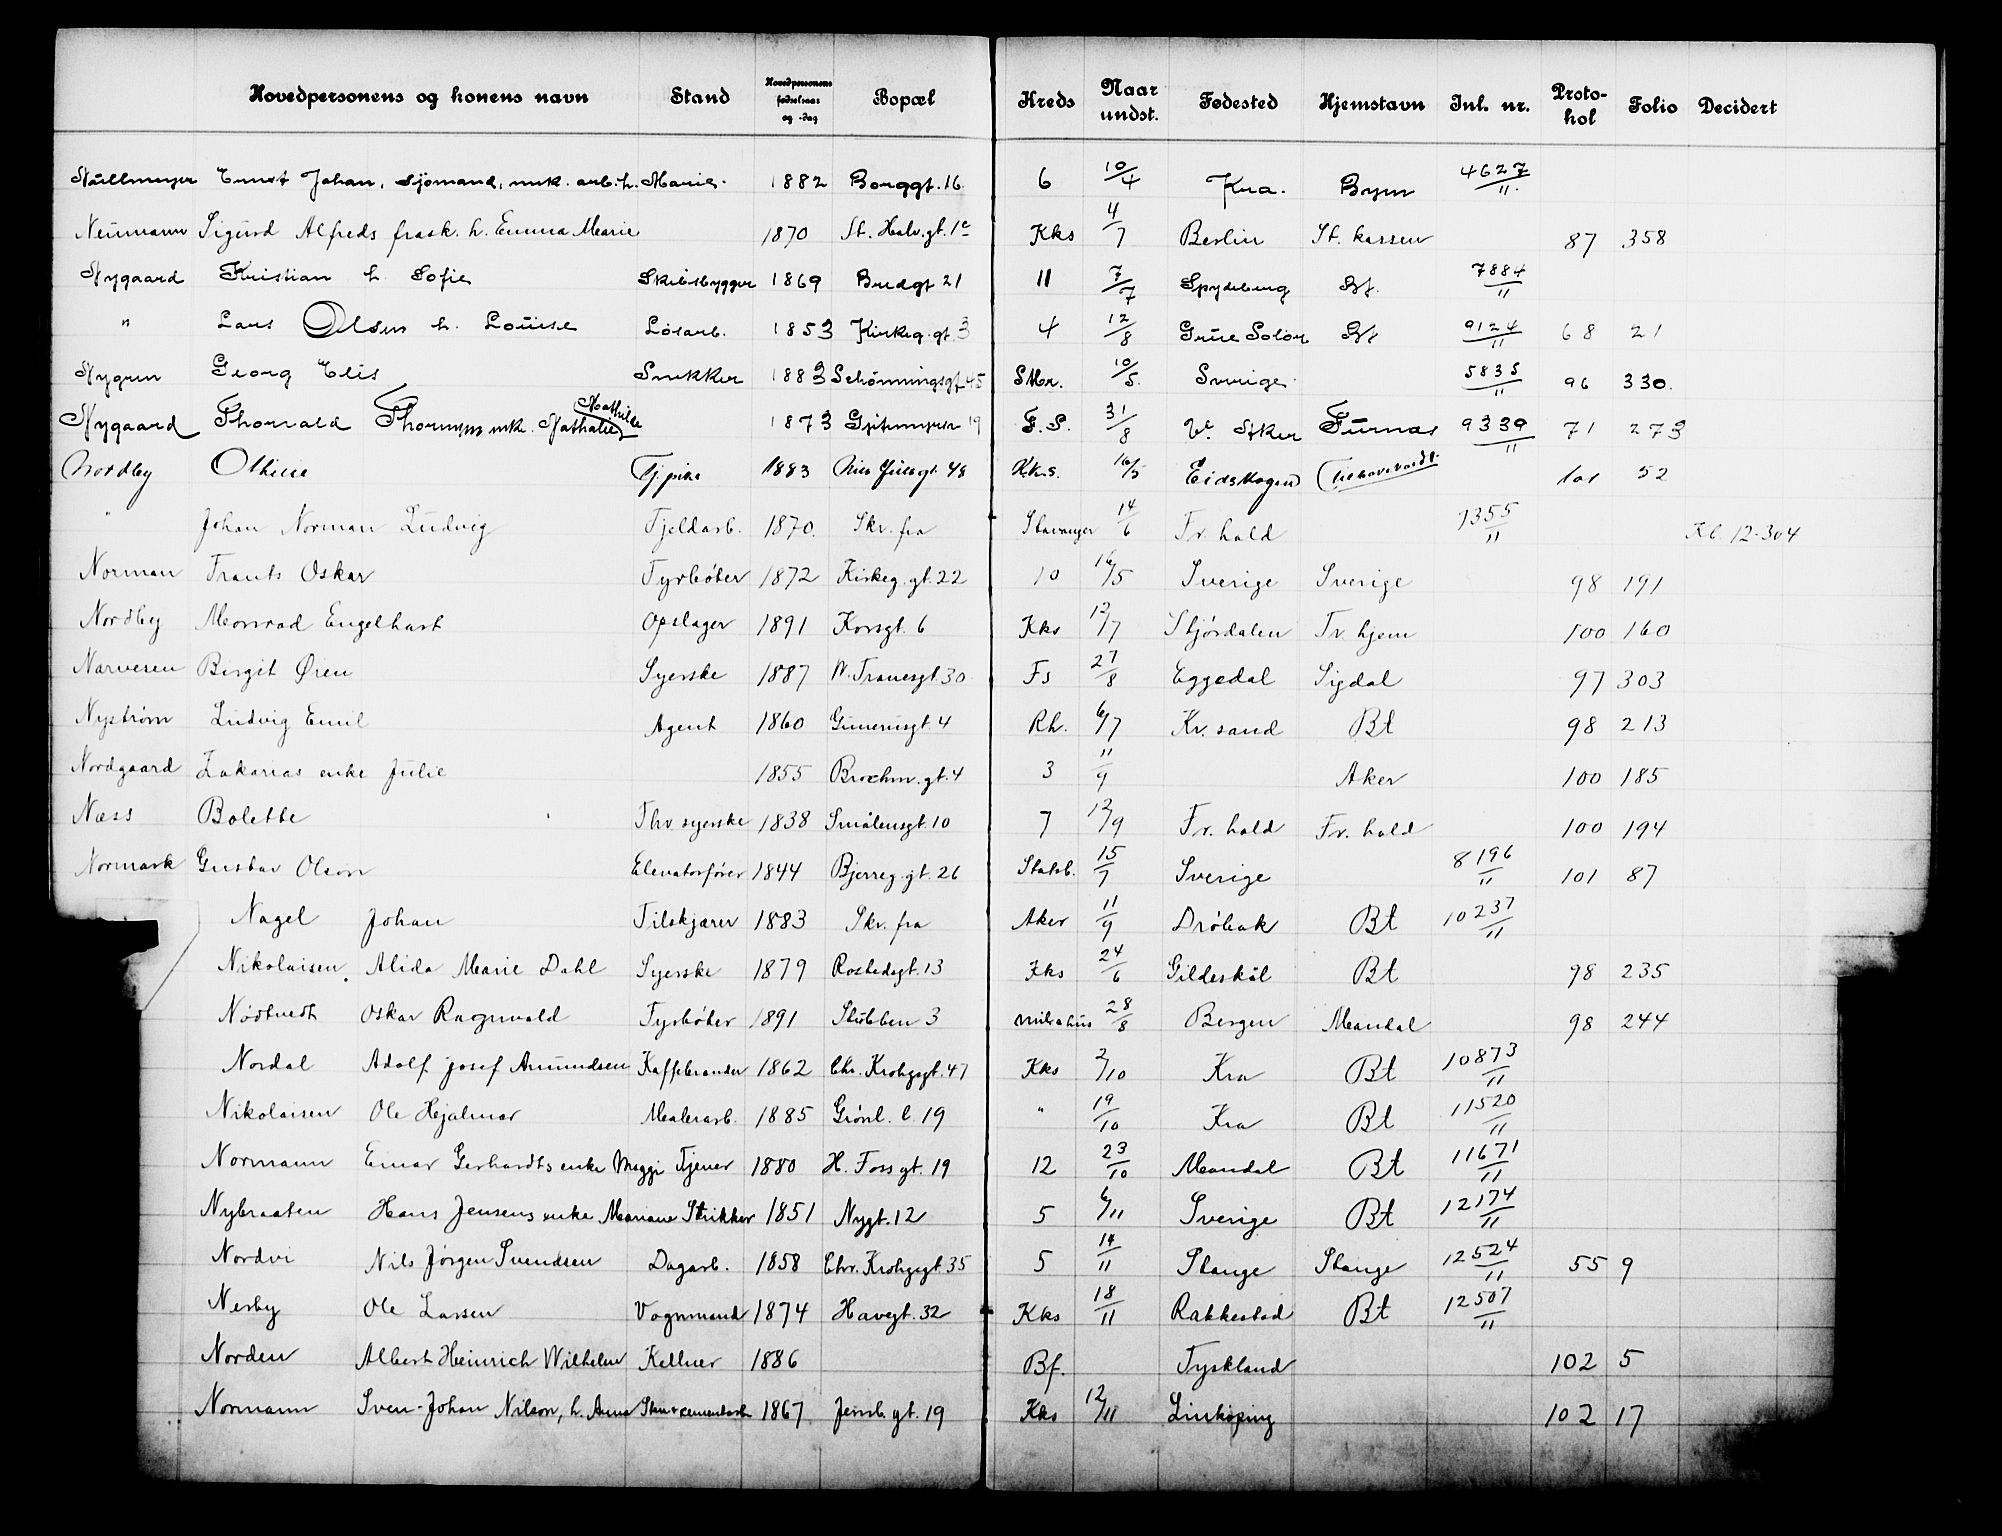 Hovedpersonens og konens navn Stand Hovedpersonens fødselsaar og -dag Bopæl Kreds Naar undst. Fødested Hjemstavn Inl. nr. Proto-kol Folio Decidert
Nüllmeyer Ernst Johan, Sjömand, enk. arb. h. Marie. 1882 Borggt. 16. 6 10/4 Kra. Byen 4627/11.
Neumann Sigurd Alfreds frask. h. Emma Marie 1870 St. Halv. gt. 1c Kks 4/7 Berlin St. kassen 87 358
Nygaard Kristian h. Sofie Skibsbygger 1869 Brudgt 21 11 7/7 Spydeberg Bt. 7884/11
" Lars Olsen h. Louise Løsarb. 1853 Kirkeg. gt. 3 4 12/8 Grue Solør Bt 9124/11 68 21
Nygren Georg Elis Snekker 1883 Schønningsgt. 45 SMr. 10/5. Sverige 5835/11 96 330.
Nygaard Thorvald Thoresens enk. Nathalie Mathilde 1873 Gjetemyrsv 19 F.S. 31/8 V. Aker Furnes 9339/11 71 273
Nordby Othilie Tj.pike 1883 Nils Juels gt. 48 Kks. 16/5 Eidskogen 101 52
" Johan Norman Ludvig Fjeldarb. 1870. Skr. fra Stavanger 14/6 Fr. hald 7355/11 Kl. 12-304
Norman Frants Oskar Fyrbøter 1872 Kirkeg. gt. 22 10 16/5 Sverige Sverige 98 191
Nordby Monrad Engelhart Opslager 1891 Korsgt. 6 Kks 12/7 Stjørdalen Tr. hjem 100 160
Narvesen Bergit Øien Syerske 1887 W. Tranesgt. 30. Fs 27/8 Eggedal Sigdal 97 303
Nystrøm Ludvig Emil Agent 1860 Gunerusgt. 4 Rh. 6/7 Kr. sand Bt 98 213
Nordgaard Zakarias enke Julie 1855 Brochm. gt. 4 3 11/9 Aker 100 185
Næss Bolette Fhv. syerske 1838 Smålensgt. 10 7 12/9 Fr. hald Fr. hald 100 194
Normark Gustav Olson Elevatorfører 1844 Bjerreg. gt. 26 Statsb. 15/7 Sverige 8196/11 101 87
Nagel Johan Tilskjærer 1883 Skr. fra Aker 11/9 Drøbak Bt 10237/11
Nikolaisen. Alida Marie Dahl Syerske 1879 Rostedsgt. 13 Kks 24/6 Gildeskål Bt 98 235
Nødtvedt Oskar Ragnvald Fyrbøter 1891 Stubben 3 28/8 Bergen Mandal 98 244
Nordal Adolf Josef Amundsen Kaffebrænder 1862 Chr. Krohgsgt. 47 Kks 2/10 Kra Bt 10873/11
Nikolaisen Ole Hjalmar Malerarb. 1885 Grønl. l. 19 " 19/10 Kra Bt 11520/11
Normann Einar Gerhardts enke Meggi Tjener 1880 H. Foss gt. 19 12 23/10 Mandal Bt 11671/11
Nybraaten Hans Jensens enke Mariane Strikker 1851 Nygt. 12 5 6/11 Sverige Bt 12174/11
Nordvi Nils Jørgen Svendsen Dagarb. 1858 Chr. Krohgsgt. 35 5 14/11 Stange Stange 12524/11 55 9
Nesby Ole Larsen Vognmand 1874 Havegt. 32 Kks 18/11 Rakkestad Bt 12507/11
Norden Albert Heinrich Wilhelm Kellner 1886 Bf. Tyskland 102 5
Normann Sven-Johan Nilson, h. Anna Sten & cementarb. 1867 Jernb. gt. 19 Kks 12/11 Linköping 102 17